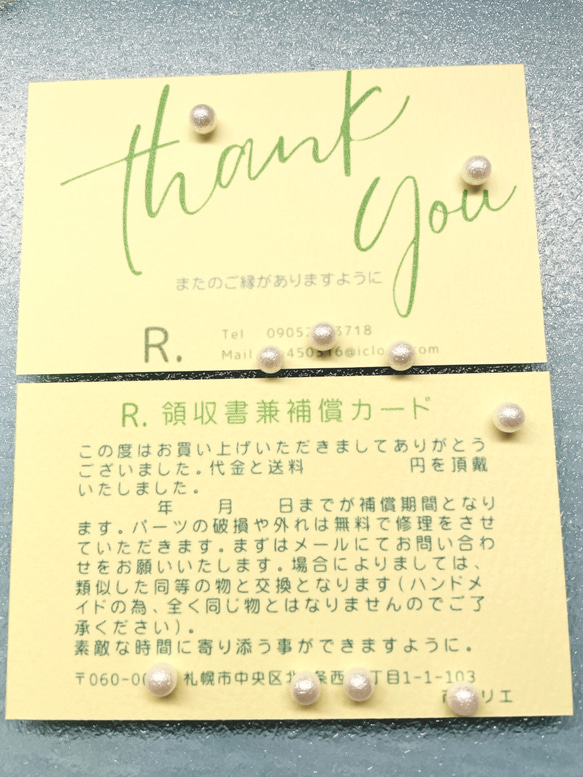 thank
you
またのご縁がありますように
R.
Tel
Mail
R. 領収書兼補償カード
この度はお買い上げいただきましてありがとう
ございました。代金と送料 円を頂戴
いたしました。
年 月 日までが補償期間となり
ます。パーツの破損や外れは無料で修理をさせ
ていただきます。まずはメールにてお問い合わ
せをお願いいたします。場合によりましては、
類似した同等の物と交換となります(ハンドメ
イドの為、全く同じ物とはなりませんのでご了
承ください)。
素敵な時間に寄り添う事ができますように。
札幌市中央区 条西 丁目1-1-103